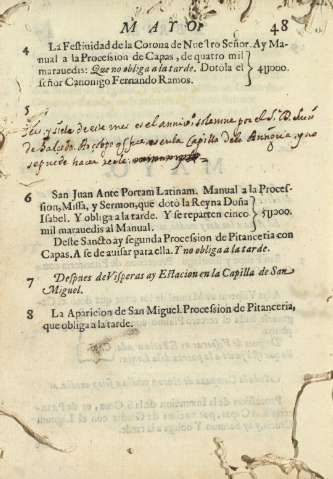 MAYO. 48
4 La Festiuidad de la Corona de Nuestro Señor. Ay Ma-
nual a la Procession de Capas, de quatro mil
marauedis: Que no obliga a la tarde. Dotola el 4y000.
señor Canonigo Fernando Ramos.
5
de este mes es el annivº solemne por el S. D.
de Obispo en la Capilla del Annoua y no
se puede hacer
6 San Juan Ante Portam Latinam. Manual a la Proces-
sion, Missa, y Sermon, que dotò la Reyna Doña
Isabel. Y obliga a la tarde. Y se reparten cinco 5y000.
mil marauedis al Manual.
Deste Sancto ay segunda Procession de Pitanceria con
Capas. A se de auisar para ella. Y no obliga a la tarde.
7 Despues de Visperas ay Estacion en la Capilla de San
Miguel.
8 La Aparicion de San Miguel. Procession de Pitanceria,
que obliga a la tarde.